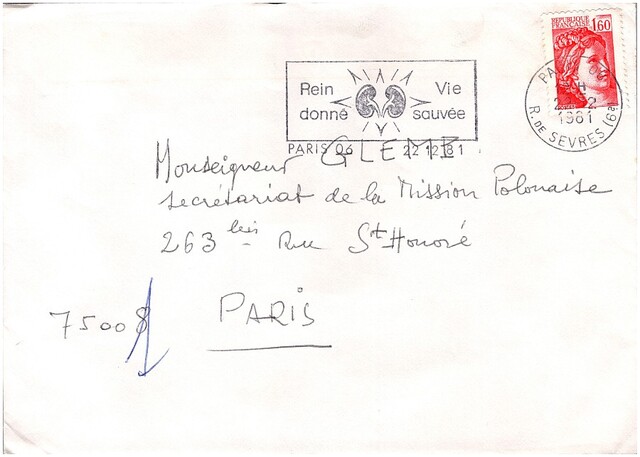 REPUBLIQUE FRANÇAISE 1,60
Rein Vie
donné sauvée
PARIS 06 22 12 81
R. DE SEVRES (6e)
1981
Monseigneur GLEMB
secrétariat de la Mission Polonaise
263 bis Rue St Honoré
75008 PARIS